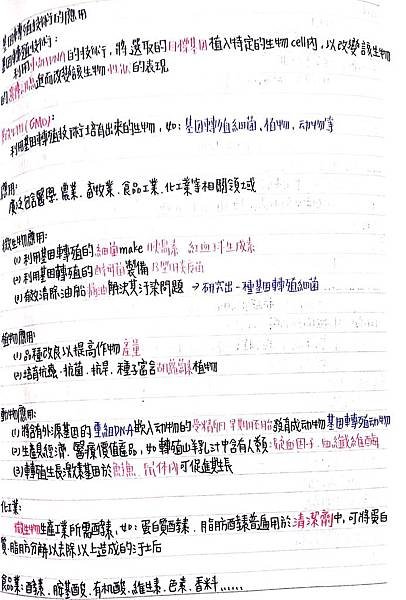 基因轉殖技術的應用
基因轉殖技術:
利用重組DNA的技術,將選取的目標基因植入特定的生物cell內,以改變該生物
的遺傳 進而改變該生物 的表現
(GMO):
利用基因轉殖技術培育出來的生物,如:基因轉殖細菌、植物、動物等
應用:
廣泛包含醫學、農業、畜牧業、食品工業、化工業等相關領域
微生物應用:
(1) 利用基因轉殖的細菌make 胰島素、紅血球生成素
(2) 利用基因轉殖的酵母菌製備B型肝炎疫苗
(3) 清除油船 問題 → 研究出一種基因轉殖細菌
植物應用:
(1) 品種改良以提高作物產量
(2) 培育抗蟲、抗菌、抗旱、種子富含胡蘿蔔素植物
動物應用:
(1) 將含有外源基因的重組DNA嵌入動物的受精卵、早期胚胎發育成動物基因轉殖動物
(2) 生產具經濟、醫療價值產品,如轉殖山羊乳汁中含有人類凝血因子、
(3) 轉殖生長激素基因於 內可促進生長
化工業:
微生物生產工業所需酵素,如:蛋白質酵素、脂肪酵素普遍用於清潔劑中,可將蛋白
質、脂肪分解以去除以上造成的汙垢
食品業:酵素、胺基酸、有機酸、維生素、色素、香料......